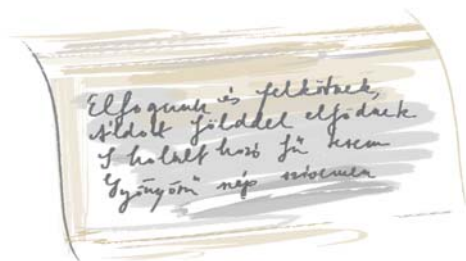 Elfognak és felkötnek,
áldott földdel elfödnek
S halált hozó fű terem
Gyönyörű szép szivemen